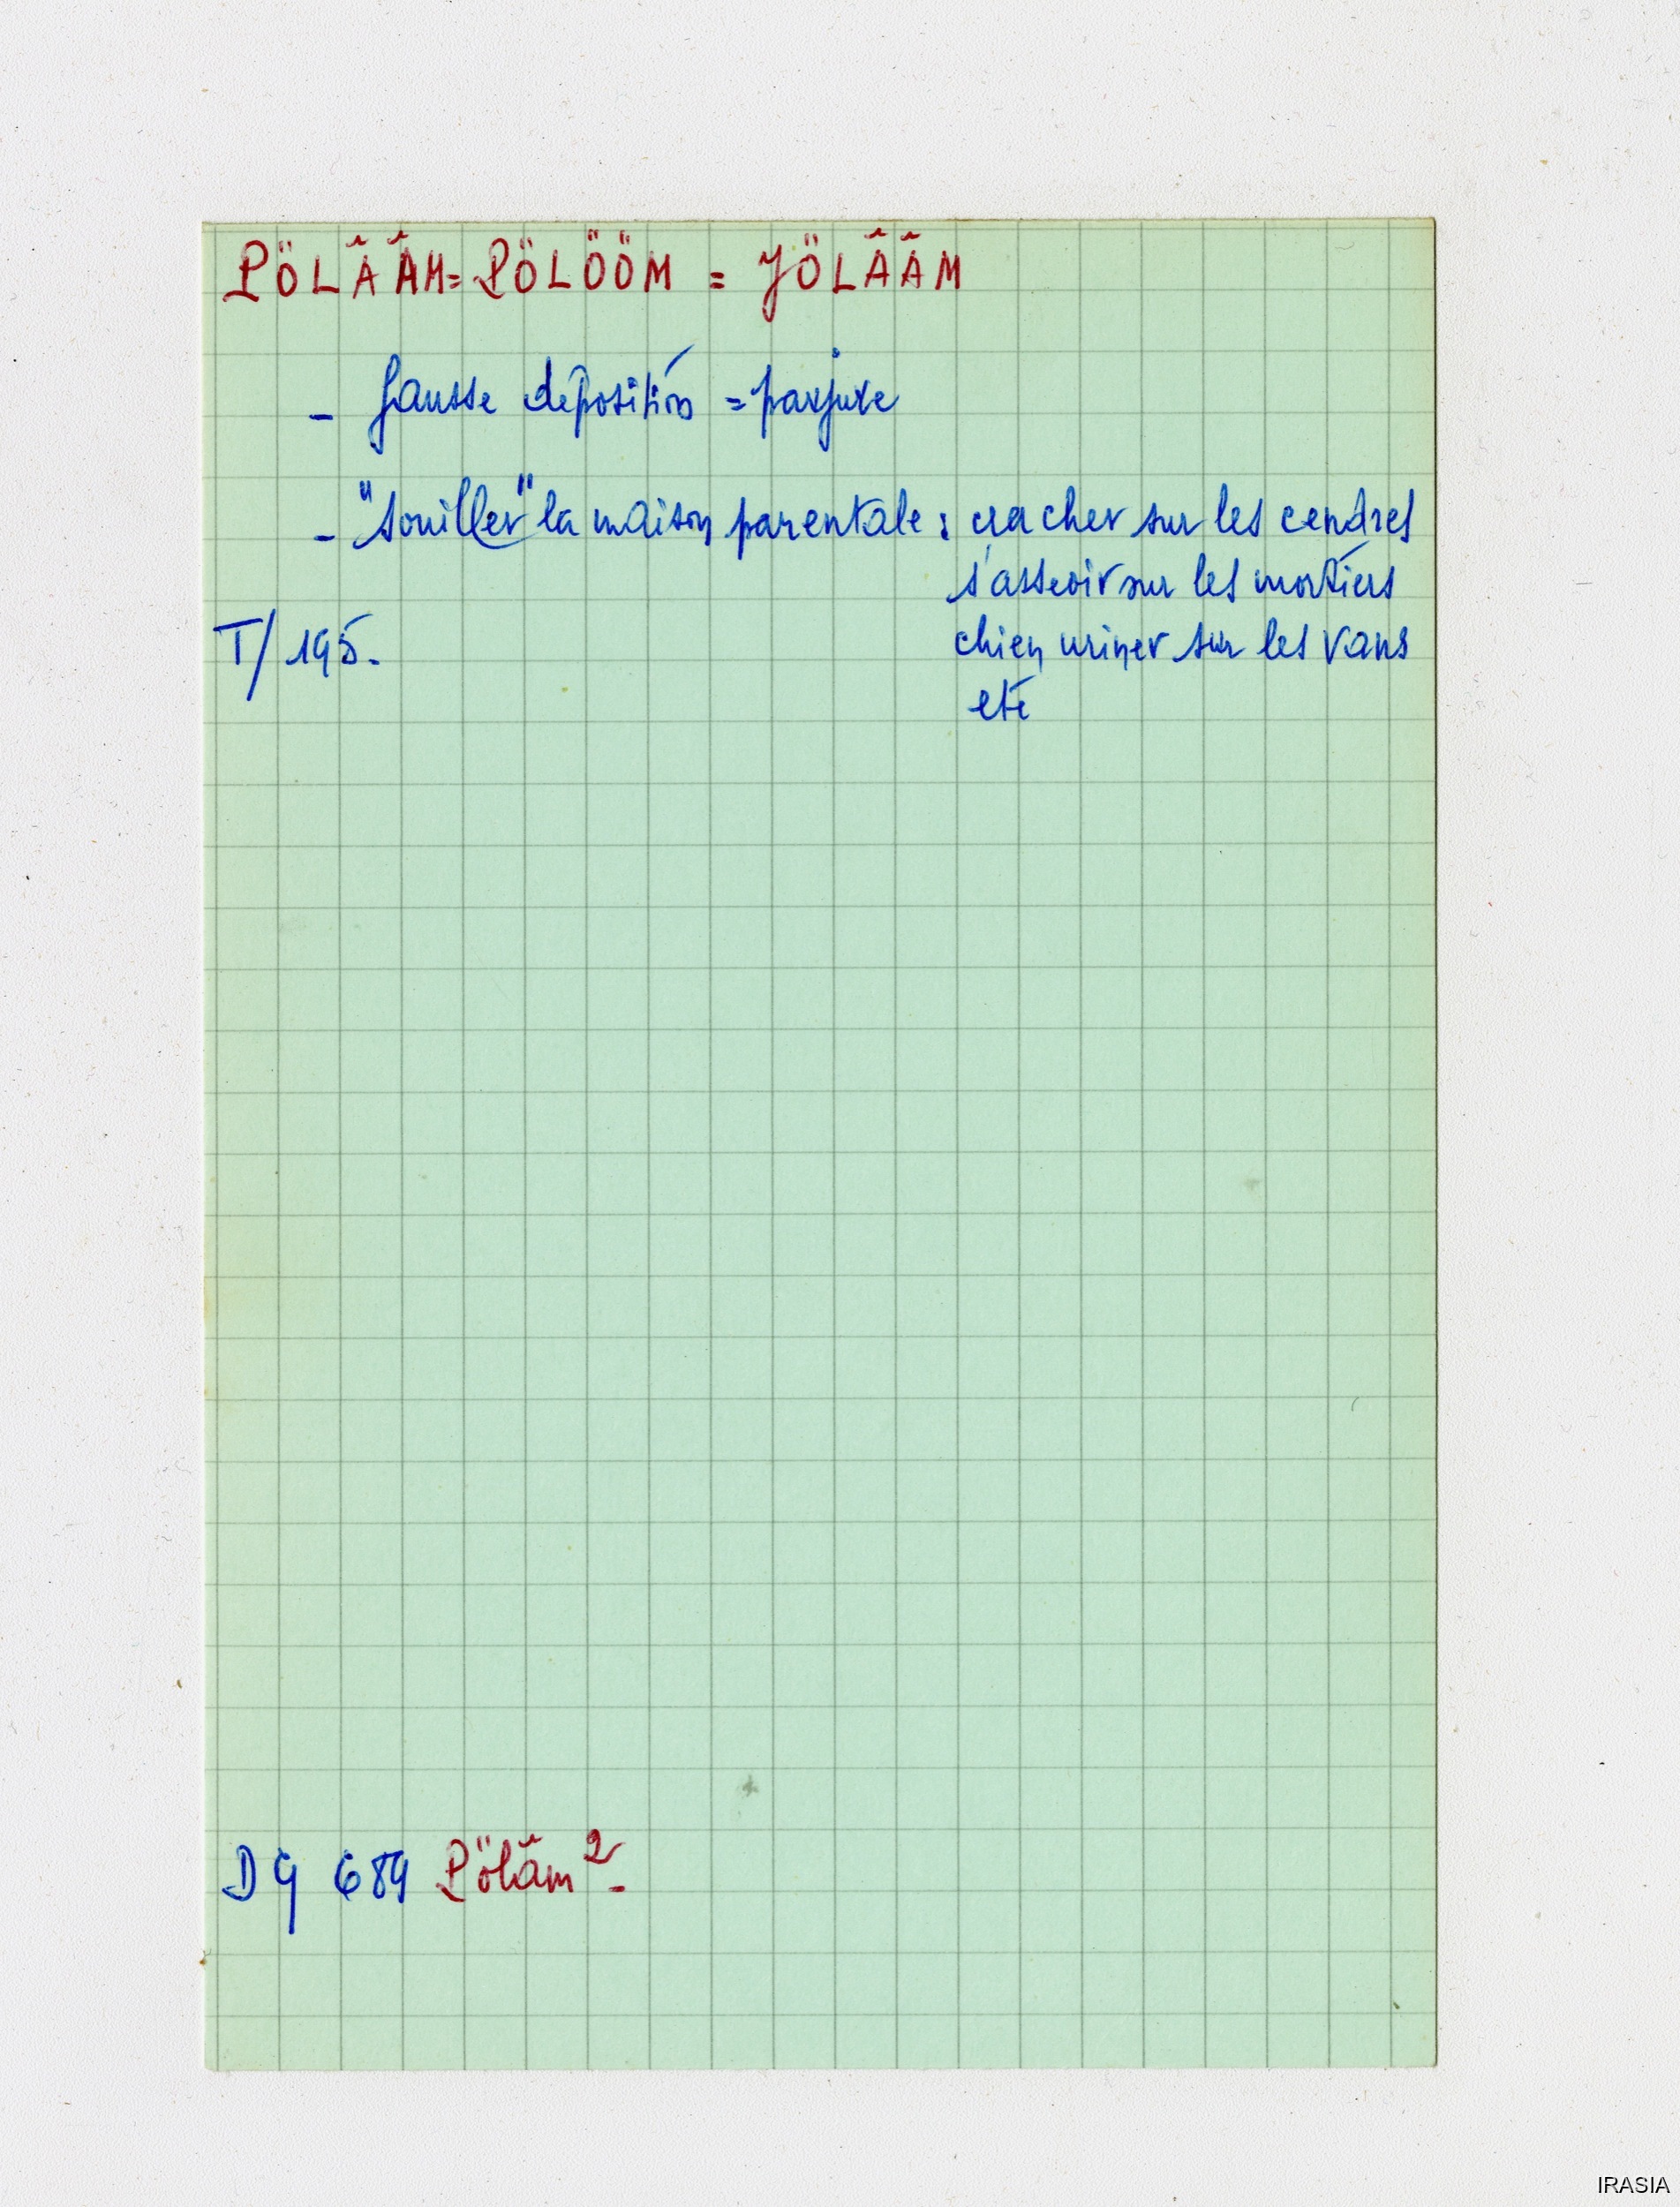 PÖLÂÂM = PÖLÖÖM = YÖLÂÂM
- fausse déposition = parjure
- "souiller" la maison parentale : cracher sur les cendres
s'asseoir sur les mortiers
T/ 195. chien uriner sur les vans
etc
DG 689 Pölâm 2 -
IRASIA